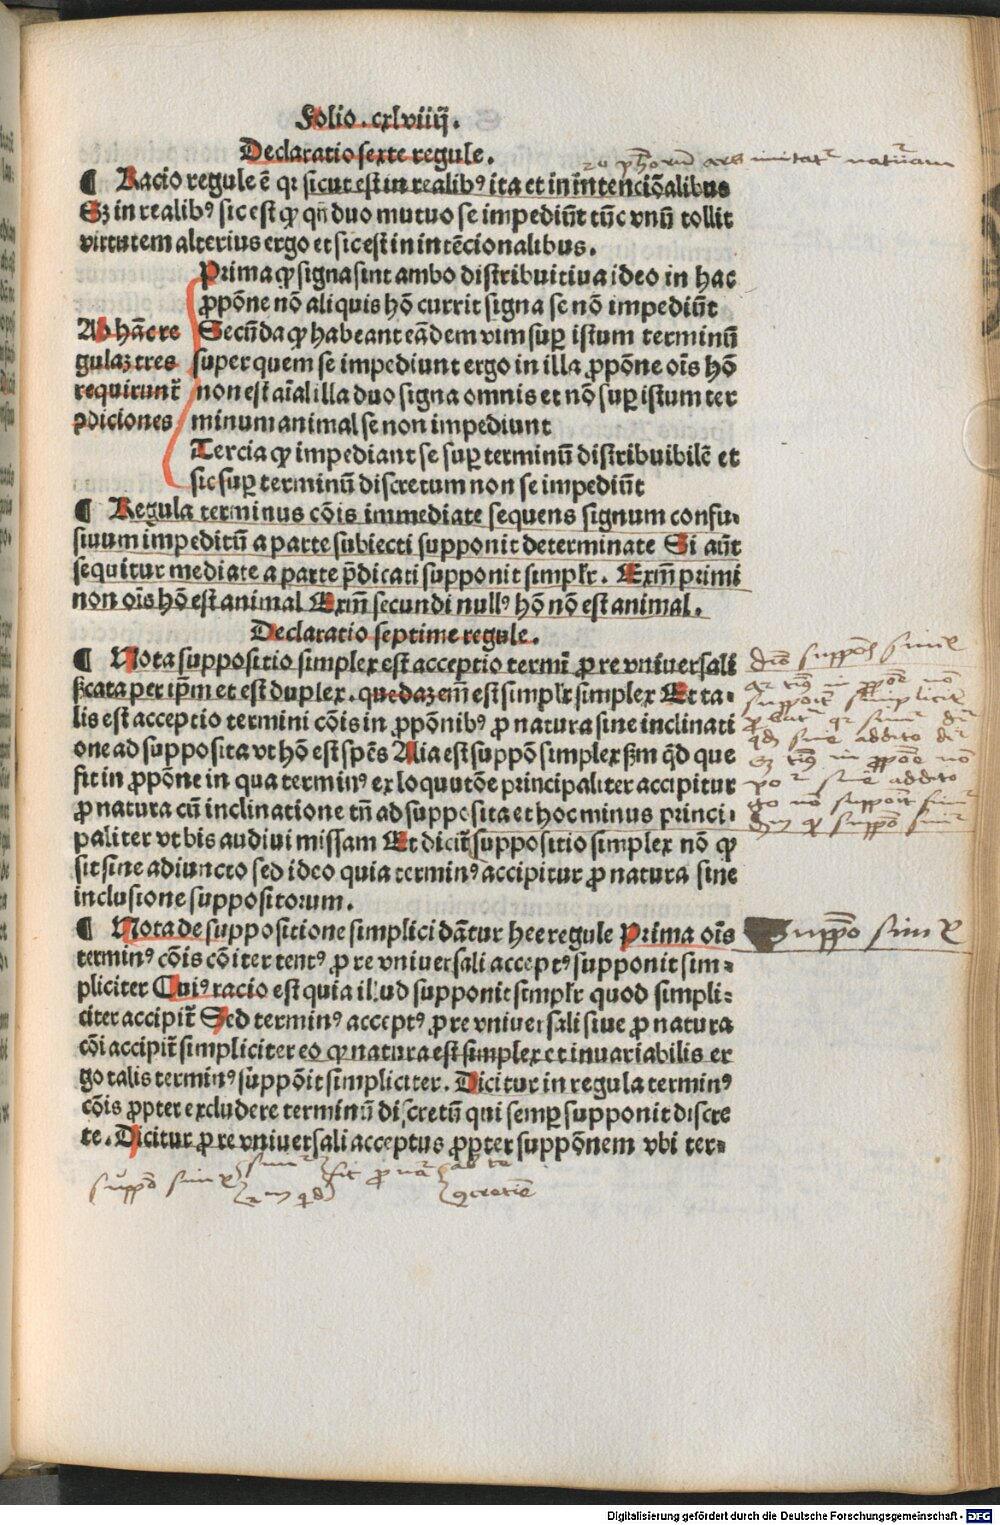 Folio . cxlviiij .
Declaratio sexte regule .
2º pħorū ars imitat᷑ natūram
¶ Racio regule ē qꝛ sicut est in realibꝰ ita et in intenciōalibus
Sꝫ in realibꝰ sic est ꝙ qn̄ duo mutuo se impediūt tūc vnū tollit
virtutem alterius ergo et sic est in intēcionalibus .
Prima ꝙ signa sint ambo distribuitiua ideo in hac
ꝓpōne nō aliquis hō currit signa se nō impediūt
Ad hāc re
gulaꝫ tres
requirunt᷑
ꝯdiciones
Secūda ꝙ habeant eādem vim suꝑ istum terminū
super quem se impediunt ergo in illa ꝓpōne oīs hō
non est aīal illa duo signa omnis et nō suꝑ istum ter
minum animal se non impediunt
Tercia ꝙ impediant se suꝑ terminū distribuibilē et
sic suꝑ terminū discretum non se impediūt
¶ Regula terminus cōis immediate sequens signum confu⸗
siuum impeditū a parte subiecti supponit determinate Si aūt
sequitur mediate a parte p̄dicati supponit simplr̄ . Exm̄ primi
non oīs hō est animal Exm̄ secundi nullꝰ hō nō est animal .
Declaratio septime regule .
¶ Nota suppositio simplex est acceptio termī ꝓ re vniuersali
sīcata per ip̄m et est duplex . quedaꝫ em̄ est simplr̄ simplex Et ta⸗
lis est acceptio termini cōis in ꝓpōnibꝰ ꝓ natura sine inclinati
one ad supposita vt hō est spēs Alia est suppōn simplex sm̄ qd̄ que
fit in ꝓpōne in qua terminꝰ ex loquutōe principaliter accipitur
ꝓ natura cū inclinatione tn̄ ad supposita et hoc minus princi⸗
paliter vt bis audiui missam Et dicit᷑ suppositio simplex nō ꝙ
sit sine adiuncto sed ideo quia terminꝰ accipitur ꝓ natura sine
inclusione suppositorum .
¶ Nota de suppositione simplici dātur hee regule Prima oīs
terminꝰ cōis cōiter tentꝰ ꝓ re vniuersali acceptꝰ supponit sim⸗
pliciter Cuiꝰ racio est quia illud supponit simplr̄ quod simpli⸗
citer accipit᷑ Sed terminꝰ acceptꝰ ꝓ re vniuersali siue ꝓ natura
cōi accipit᷑ simpliciter eo ꝙ natura est simplex et inuariabilis er
go talis terminꝰ suppōit simpliciter . Dicitur in regula terminꝰ
cōis ꝓpter excludere terminū discretū qui semꝑ supponit discre
te . Dicitur ꝓ re vniuersali acceptus ꝓpter suppōnem vbi ter⸗
Suppō simꝉ
suppō simꝉ
Digitalisierung gefördert durch die Deutsche Forschungsgemeinschaft - DFG